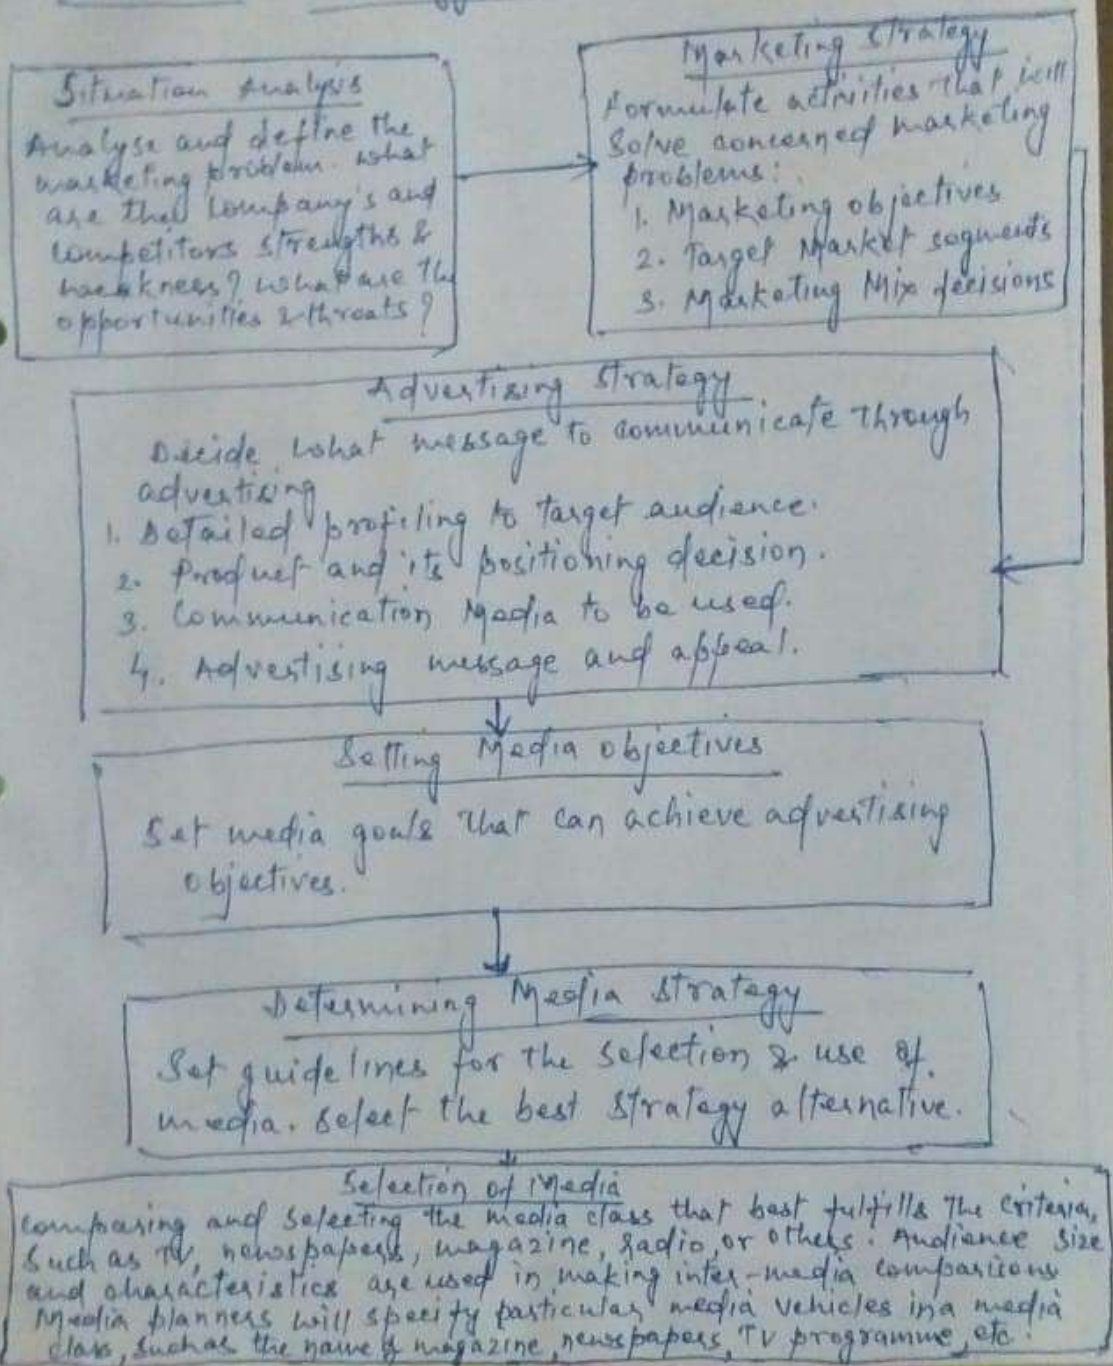 Situation Analysis
Analyse and define the
marketing problem. What
are the company's and
competitors strengths &
weakness? what are the
opportunities & threats?
Marketing Strategy
Formulate activities that will
Solve concerned marketing
problems:
1. Marketing objectives
2. Target Market segments
3. Marketing Mix decisions
Advertising Strategy
Decide what message to communicate through
advertising
1. Detailed profiling to target audience.
2. Product and its positioning decision.
3. Communication Media to be used.
4. Advertising message and appeal.
Setting Media objectives
Set media goals that can achieve advertising
objectives.
Determining Media Strategy
Set guidelines for the selection & use of
media. Select the best strategy alternative.
Selection of Media
Comparing and selecting the media class that best fulfills the criteria,
Such as TV, newspapers, magazine, radio, or others. Audience size
and characteristics are used in making inter-media comparisons
Media planners will specify particular media vehicles in a media
class, such as the name of magazine, newspapers, TV programme, etc.